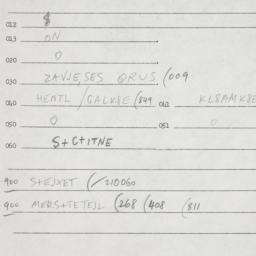 012 $
013 ON
020 O
030 ZAVJE,SES QRUS (009
040 HENTL / GALK8E (849 041 KL8AMK8E
050 O 051 O
060 S+C+ITNE
900 S+EJXET (/210060
900 MERS+TETEJL (268 (408 (811